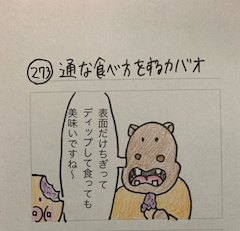 273 通な食べ方をするカバオ
表面だけちぎって
ディップして食っても
美味いですね〜